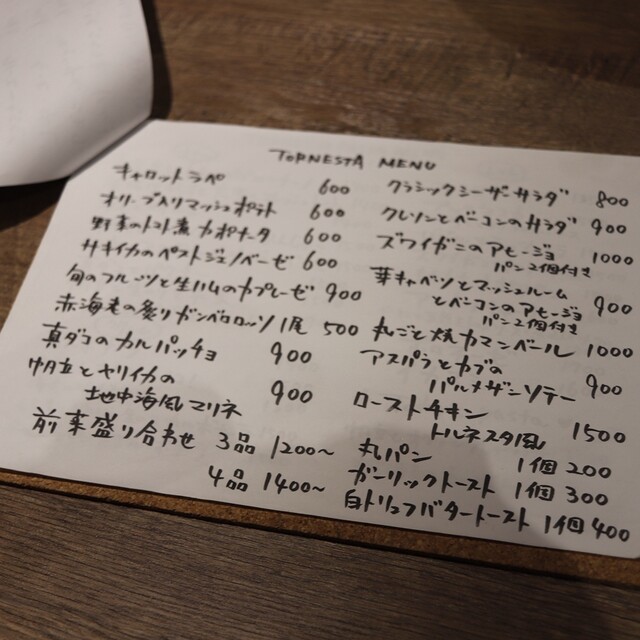 TORNESTA MENU
キャロットラペ 600
オリーブ入りマッシュポテト 600
野菜のトマト煮カポナータ 600
ヤキイカのペストジェノベーゼ 600
旬のフルーツと生ハムのカプレーゼ 900
赤海老の炙りガンベロロッソ 1尾 500
真ダコのカルパッチョ 900
帆立とヤリイカの
地中海風マリネ 900
前菜盛り合わせ 3品 1200～
4品 1400～
クラシックシーザーサラダ 800
クレソンとベーコンのサラダ 900
ズワイガニのアヒージョ 1000
パン2個付き
芽キャベツとマッシュルーム
とベーコンのアヒージョ 900
パン2個付き
丸ごと焼カマンベール 1000
アスパラとカブの
パルメザンソテー 900
ローストチキン
トルネスタ風 1500
丸パン 1個 200
ガーリックトースト 1個 300
白トリュフバタートースト 1個 400